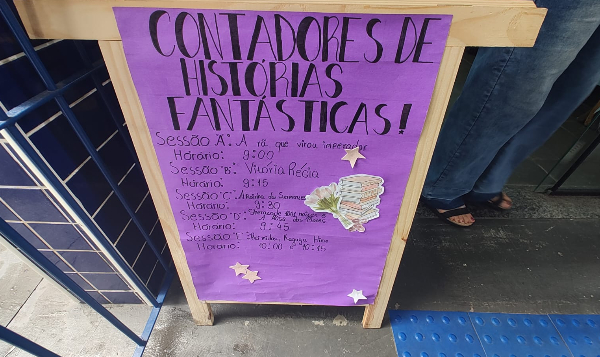 CONTADORES DE
HISTÓRIAS
FANTÁSTICAS!
SESSÃO "A": A rã que virou imperador
Horário: 9:00
SESSÃO "B": Vitória Régia
Horário: 9:15
SESSÃO "C":
Horário: 9:30
SESSÃO "D":
Horário: 9:45
SESSÃO
Horário: 10:00 e 10:15